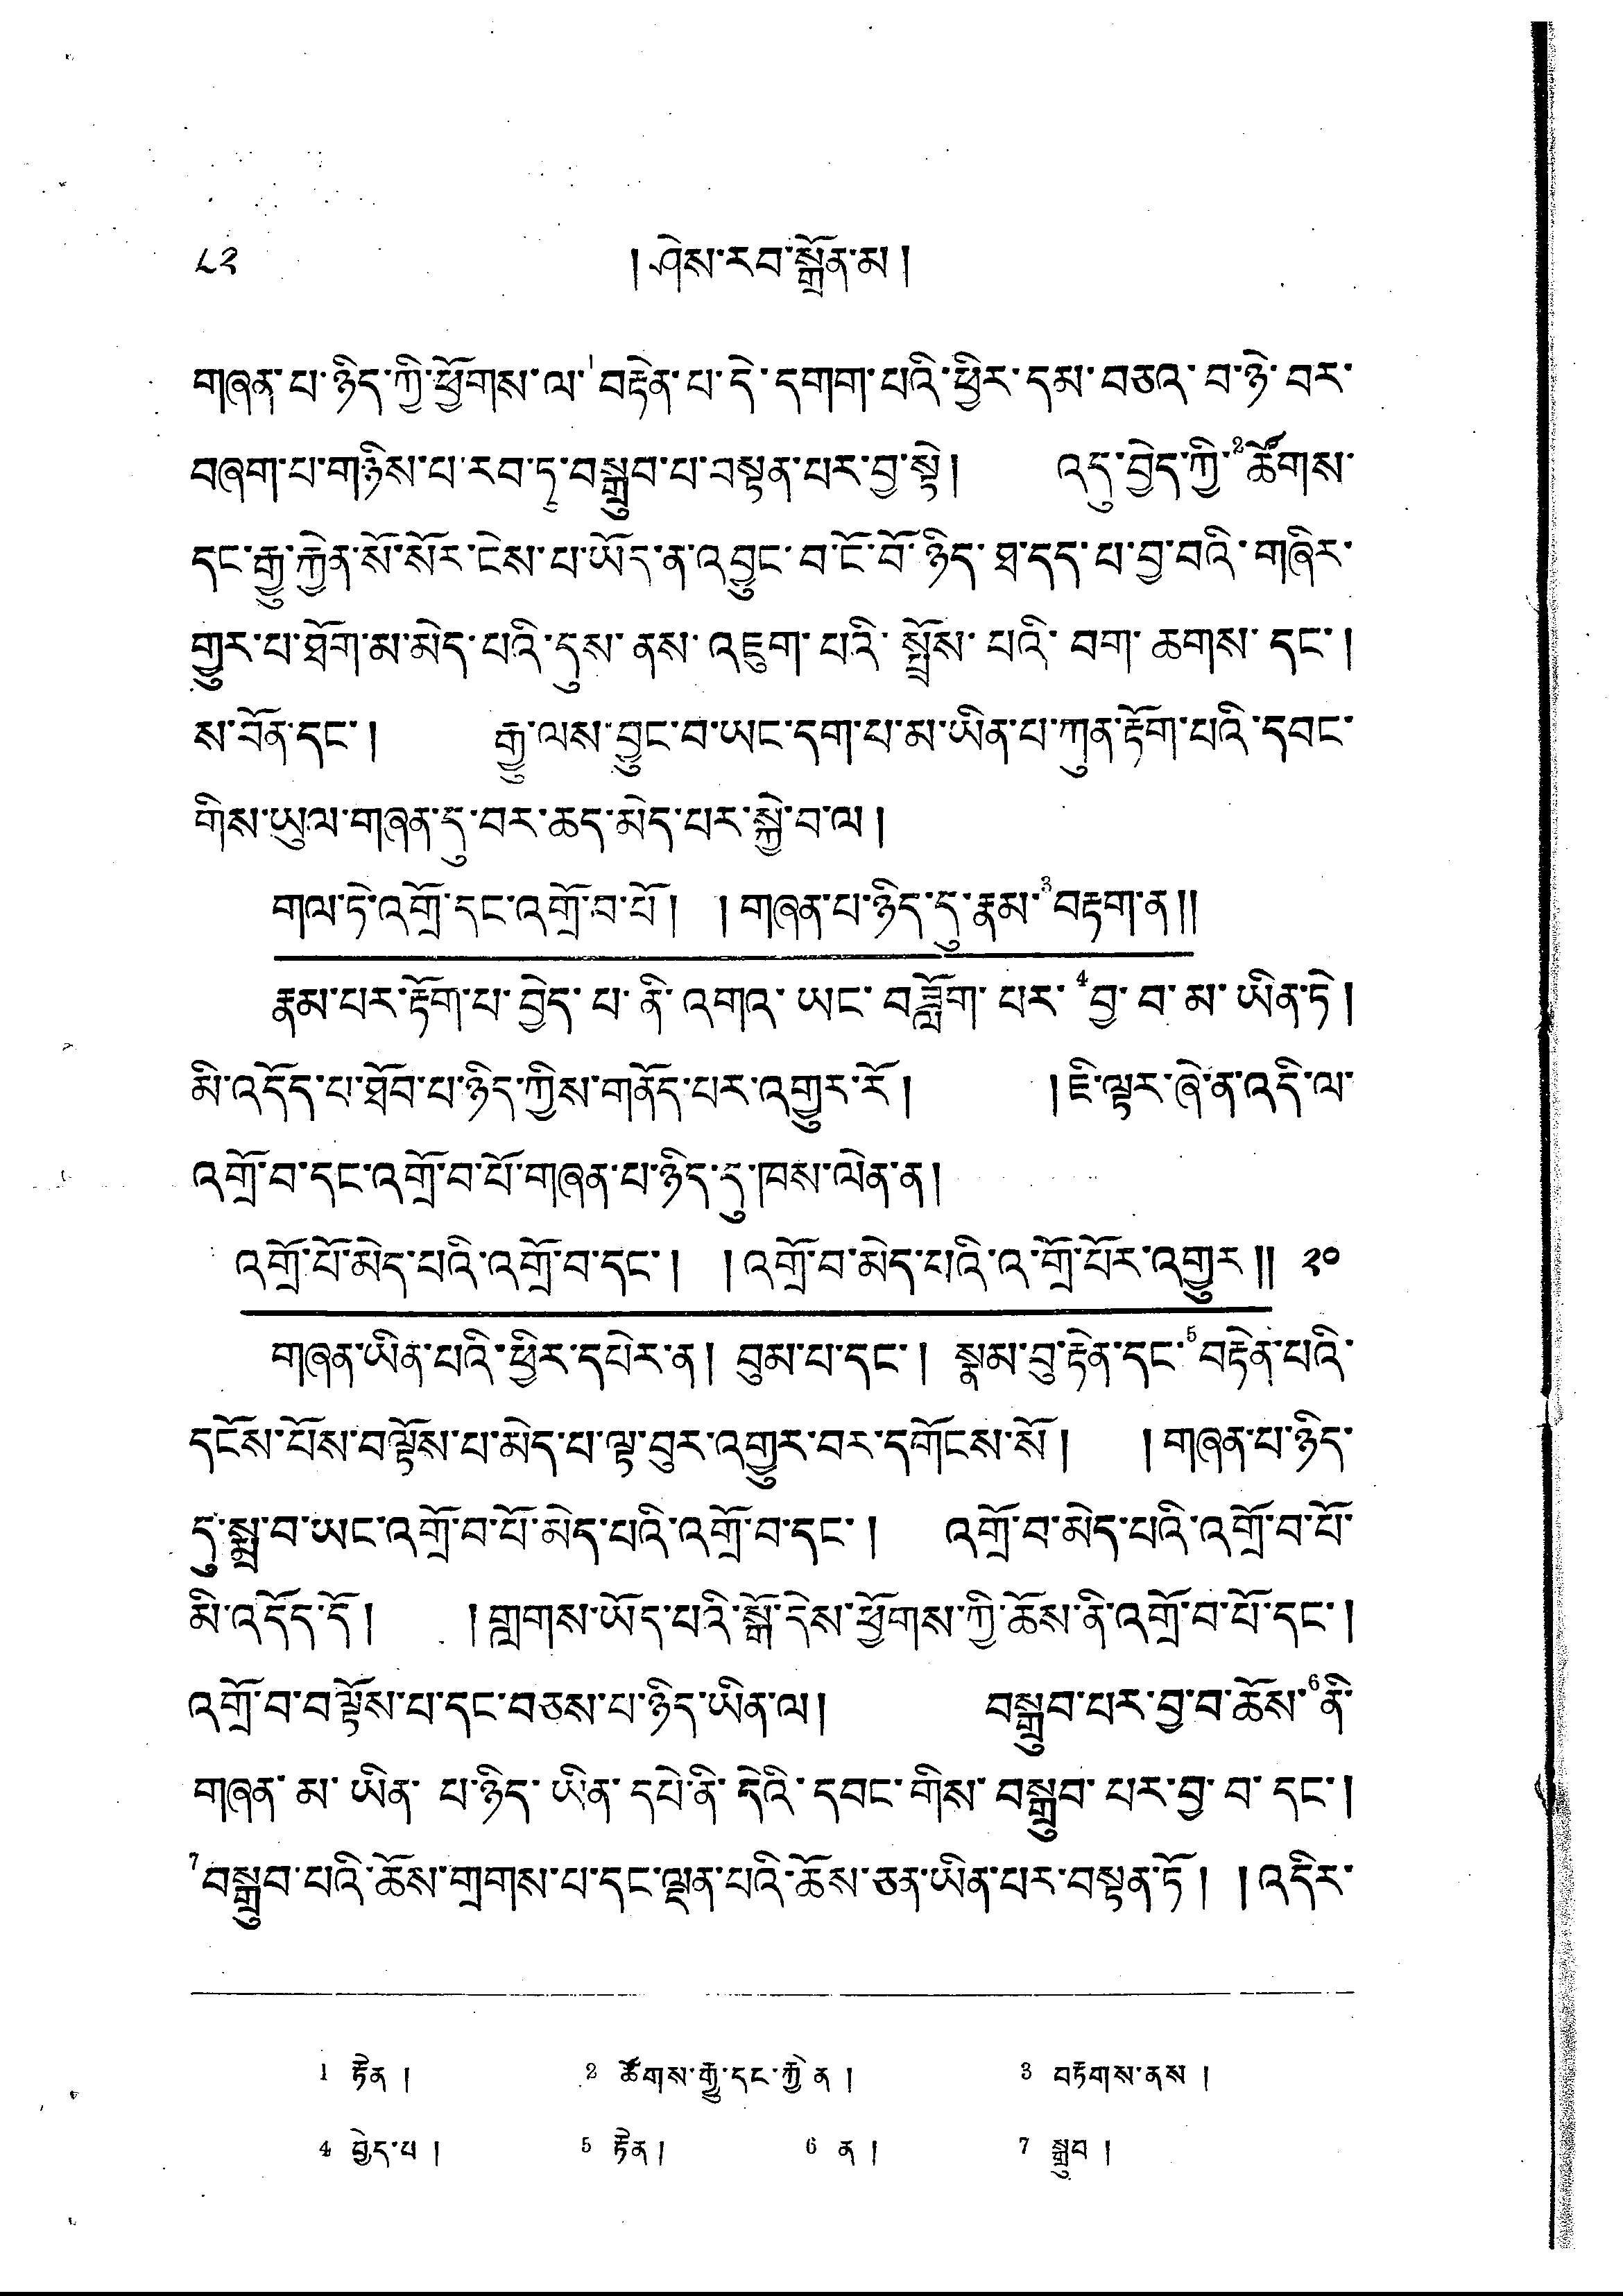 ༨༢ ། ཤེས་རབ་སྒྲོན་མ །
གཞན་པ་ཉིད་ཀྱི་ཕྱོགས་ལ་¹བརྟེན་པ་དེ་དགག་པའི་ཕྱིར་དམ་བཅའ་བ་ཉེ་བར་
བཞག་པ་གཉིས་པ་རབ་ཏུ་བསྒྲུབ་པ་བསྟན་པར་བྱ་སྟེ། འདུ་བྱེད་ཀྱི་²ཚོགས་
དང་རྒྱུ་རྐྱེན་སོ་སོར་ངེས་པ་ཡོད་ན་འབྱུང་བ་ངོ་བོ་ཉིད་ཐ་དད་པ་བྱ་བའི་གཞིར་
གྱུར་པ་ཐོག་མ་མེད་པའི་དུས་ནས་འཇུག་པའི་སྤྲོས་པའི་བག་ཆགས་དང་།
ས་བོན་དང་། རྒྱུ་ལས་བྱུང་བ་ཡང་དག་པ་མ་ཡིན་པ་ཀུན་རྟོག་པའི་དབང་
གིས་ཡུལ་གཞན་དུ་བར་ཆད་མེད་པར་སྐྱེ་བ་ལ།
གལ་ཏེ་འགྲོ་དང་འགྲོ་བ་པོ། །གཞན་པ་ཉིད་དུ་རྣམ་³བརྟག་ན།།
རྣམ་པར་རྟོག་པ་བྱེད་པ་ནི་འགའ་ཡང་བཟློག་པར་⁴བྱ་བ་མ་ཡིན་ཏེ།
མི་འདོད་པ་ཐོབ་པ་ཉིད་ཀྱིས་གནོད་པར་འགྱུར་རོ། །ཇི་ལྟར་ཞེ་ན་འདི་ལ་
འགྲོ་བ་དང་འགྲོ་བ་པོ་གཞན་པ་ཉིད་དུ་ཁས་ལེན་ན།
འགྲོ་པོ་མེད་པའི་འགྲོ་བ་དང་། །འགྲོ་བ་མེད་པའི་འ་གྲོ་པོར་འགྱུར།། ༢༠
གཞན་ཡིན་པའི་ཕྱིར་དཔེར་ན། བུམ་པ་དང་། སྣམ་བུ་རྟེན་དང་⁵བརྟེན་པའི་
དངོས་པོས་བལྟོས་པ་མེད་པ་ལྟ་བུར་འགྱུར་བར་དགོངས་སོ། །གཞན་པ་ཉིད་
དུ་སྨྲ་བ་ཡང་འགྲོ་བ་པོ་མེད་པའི་འགྲོ་བ་དང་། འགྲོ་བ་མེད་པའི་འགྲོ་བ་པོ་
མི་འདོད་དོ། །གླགས་ཡོད་པའི་སྒོ་དེས་ཕྱོགས་ཀྱི་ཆོས་ནི་འགྲོ་བ་པོ་དང་།
འགྲོ་བ་བལྟོས་པ་དང་བཅས་པ་ཉིད་ཡིན་ལ། བསྒྲུབ་པར་བྱ་བ་ཆོས་⁶ནི་
གཞན་མ་ཡིན་པ་ཉིད་ཡིན་དཔེ་ནི་དེའི་དབང་གིས་བསྒྲུབ་པར་བྱ་བ་དང་།
⁷བསྒྲུབ་པའི་ཆོས་གྲགས་པ་དང་ལྡན་པའི་ཆོས་ཅན་ཡིན་པར་བསྟན་ཏོ། །འདིར་
1 རྟེན། 2 ཚོགས་རྒྱུ་དང་རྐྱེན། 3 བརྟགས་ནས།
4 བྱེད་པ། 5 རྟེན། 6 ན། 7 སྒྲུབ།